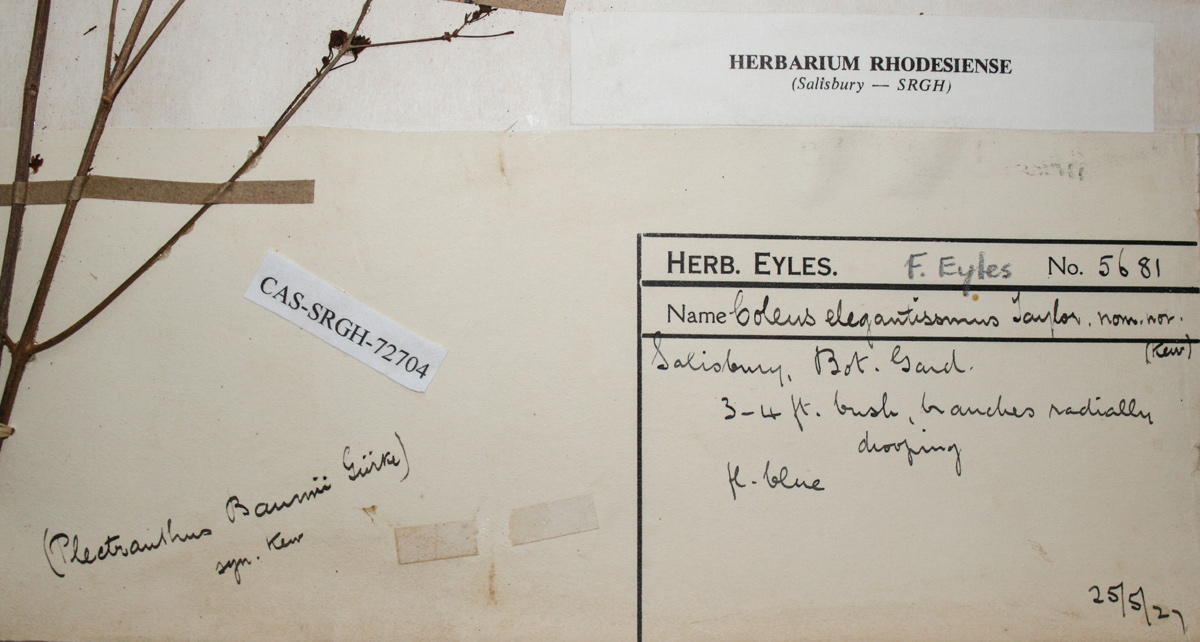 HERBARIUM RHODESIENSE
(Salisbury — SRGH)
HERB. EYLES. F. Eyles No. 5681
Name Coleus elegantissimus Taylor. nom. nov.
(Kew)
Salisbury, Bot. Gard.
3-4 ft. bush, branches radially
drooping
fl. blue
25/5/27
CAS-SRGH-72704
(Plectranthus Baumii Gürke)
syn. Kew